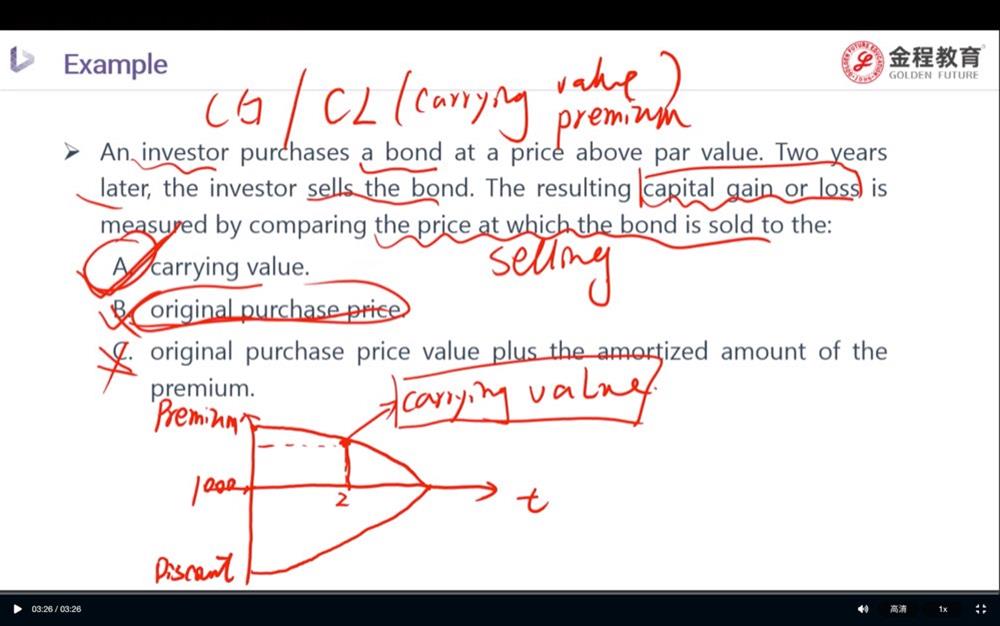 Example
金程教育
GOLDEN FUTURE
CG / CL (carrying value)
premium
➤ An investor purchases a bond at a price above par value. Two years
later, the investor sells the bond. The resulting capital gain or loss is
measured by comparing the price at which the bond is sold to the:
selling
A. carrying value.
B. original purchase price.
C. original purchase price value plus the amortized amount of the
premium.
carrying value.
Premium
1000
2
t
Discount
03:26 / 03:26
高清
1x